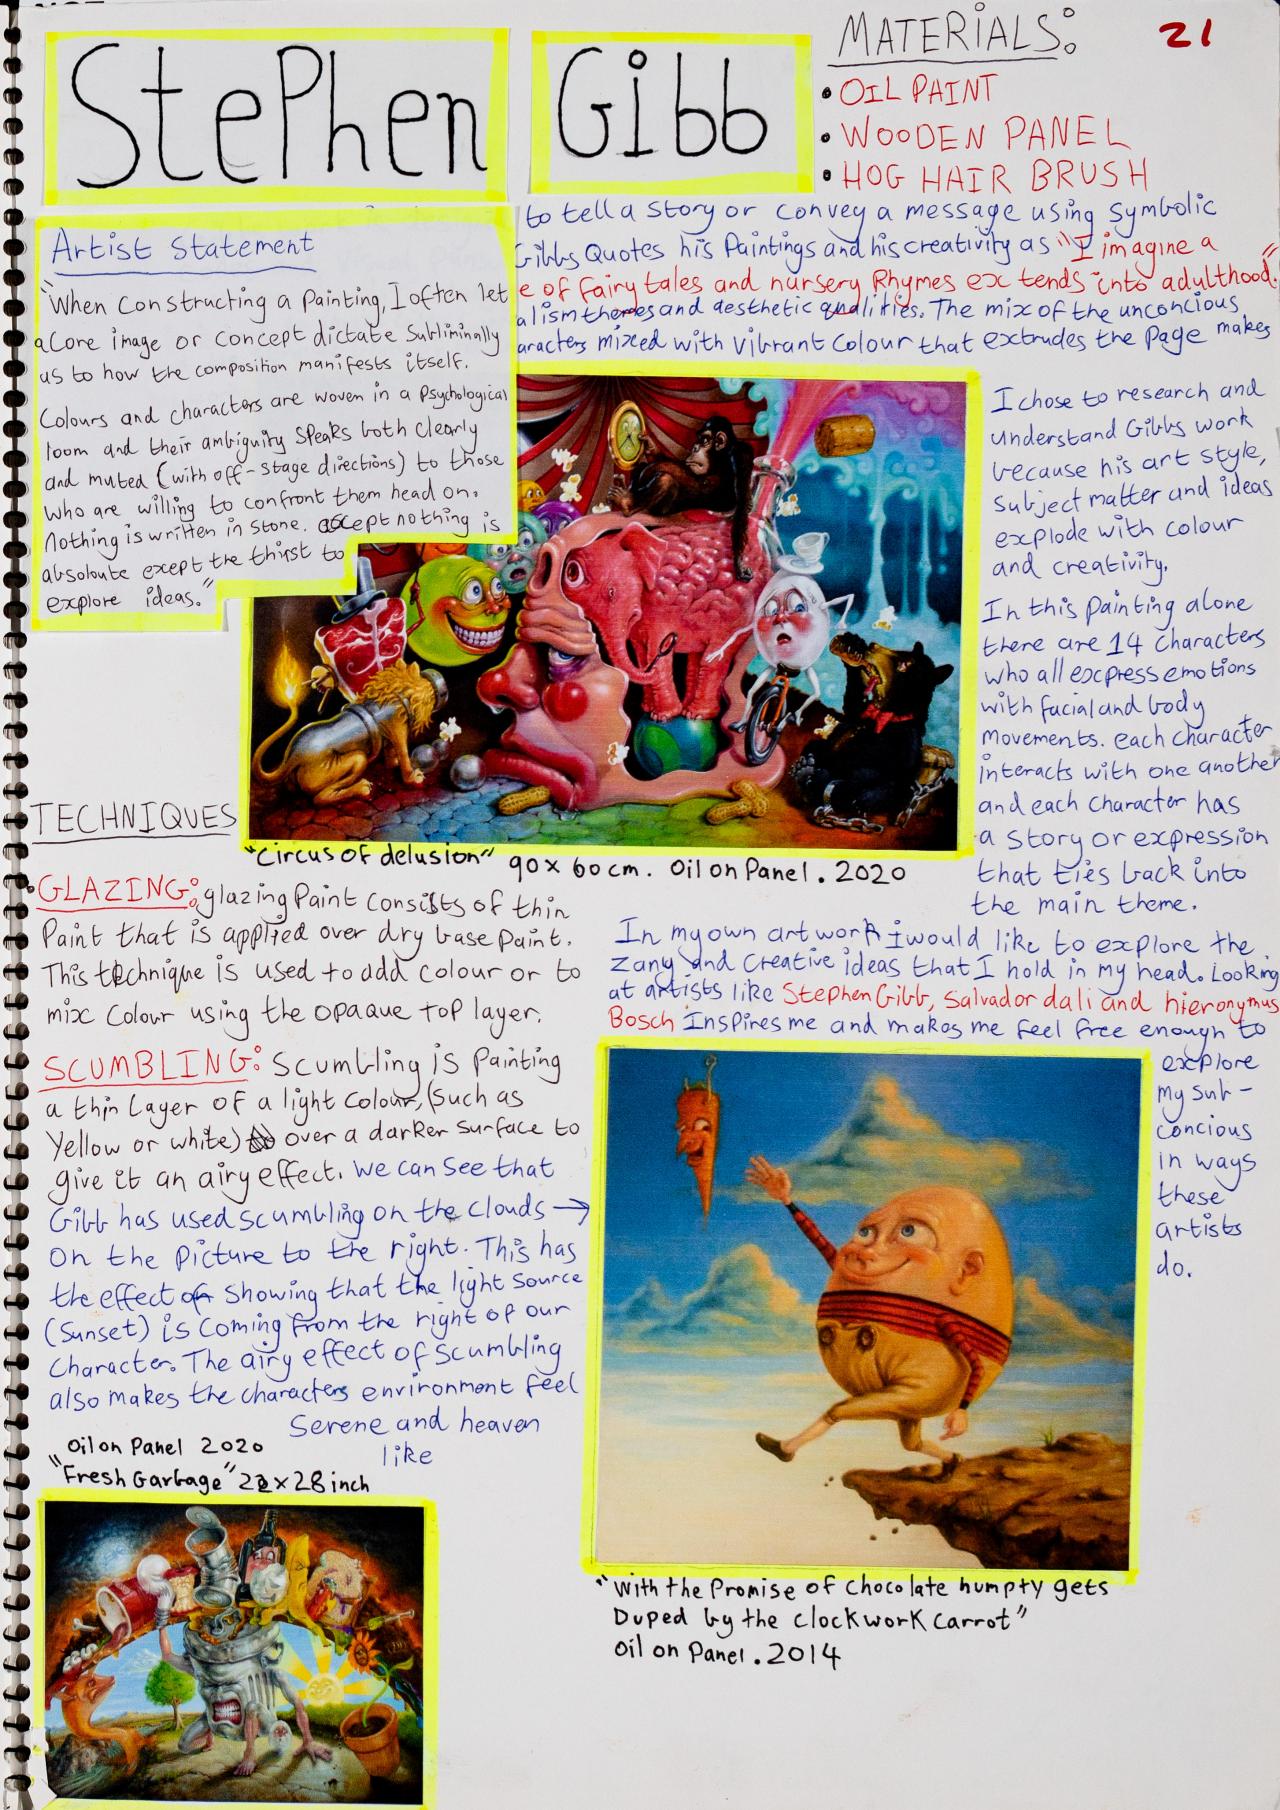 StePhen Gibb
21
MATERIALS:
• OIL PAINT
• WOODEN PANEL
• HOG HAIR BRUSH
to tell a story or convey a message using symbolic
Gibbs Quotes his Paintings and his creativity as "I imagine a
e of fairy tales and nursery Rhymes extends into adulthood."
alism themes and aesthetic qualities. The mix of the unconcious
aracters mixed with vibrant colour that extrudes the Page makes
Artist Statement
"When constructing a painting, I often let
a core image or concept dictate subliminally
as to how the composition manifests itself.
Colours and characters are woven in a Psychological
loom and their ambiguity speaks both clearly
and muted (with off-stage directions) to those
who are willing to confront them head on.
Nothing is written in stone. except nothing is
absoloute except the thirst to
explore ideas."
I chose to research and
understand Gibbs work
because his art style,
subject matter and ideas
explode with colour
and creativity.
In this painting alone
there are 14 characters
who all excpress emotions
with facial and body
movements. each character
interacts with one another
and each character has
a story or expression
that ties back into
the main theme.
"Circus of delusion" 90 x 60cm. Oil on Panel. 2020
TECHNIQUES
• GLAZING: glazing Paint consists of thin
Paint that is applied over dry base paint.
This technique is used to add colour or to
mix colour using the opaque top layer.
SCUMBLING: Scumbling is Painting
a thin layer of a light colour, (such as
Yellow or white) over a darker surface to
give it an airy effect. We can see that
Gibb has used scumbling on the clouds →
On the picture to the right. This has
the effect of showing that the light source
(sunset) is coming from the right of our
character. The airy effect of scumbling
also makes the characters environment feel
serene and heaven
like
In my own artwork i would like to explore the
zany and creative ideas that I hold in my head. Looking
at artists like Stephen Gibb, Salvador dali and hieronymus
Bosch Inspires me and makes me feel free enough to
explore
my sub-
concious
in ways
these
artists
do.
Oil on Panel 2020
"Fresh Garbage" 22 x 28 inch
"With the Promise of chocolate humpty gets
Duped by the clockwork carrot"
Oil on Panel. 2014